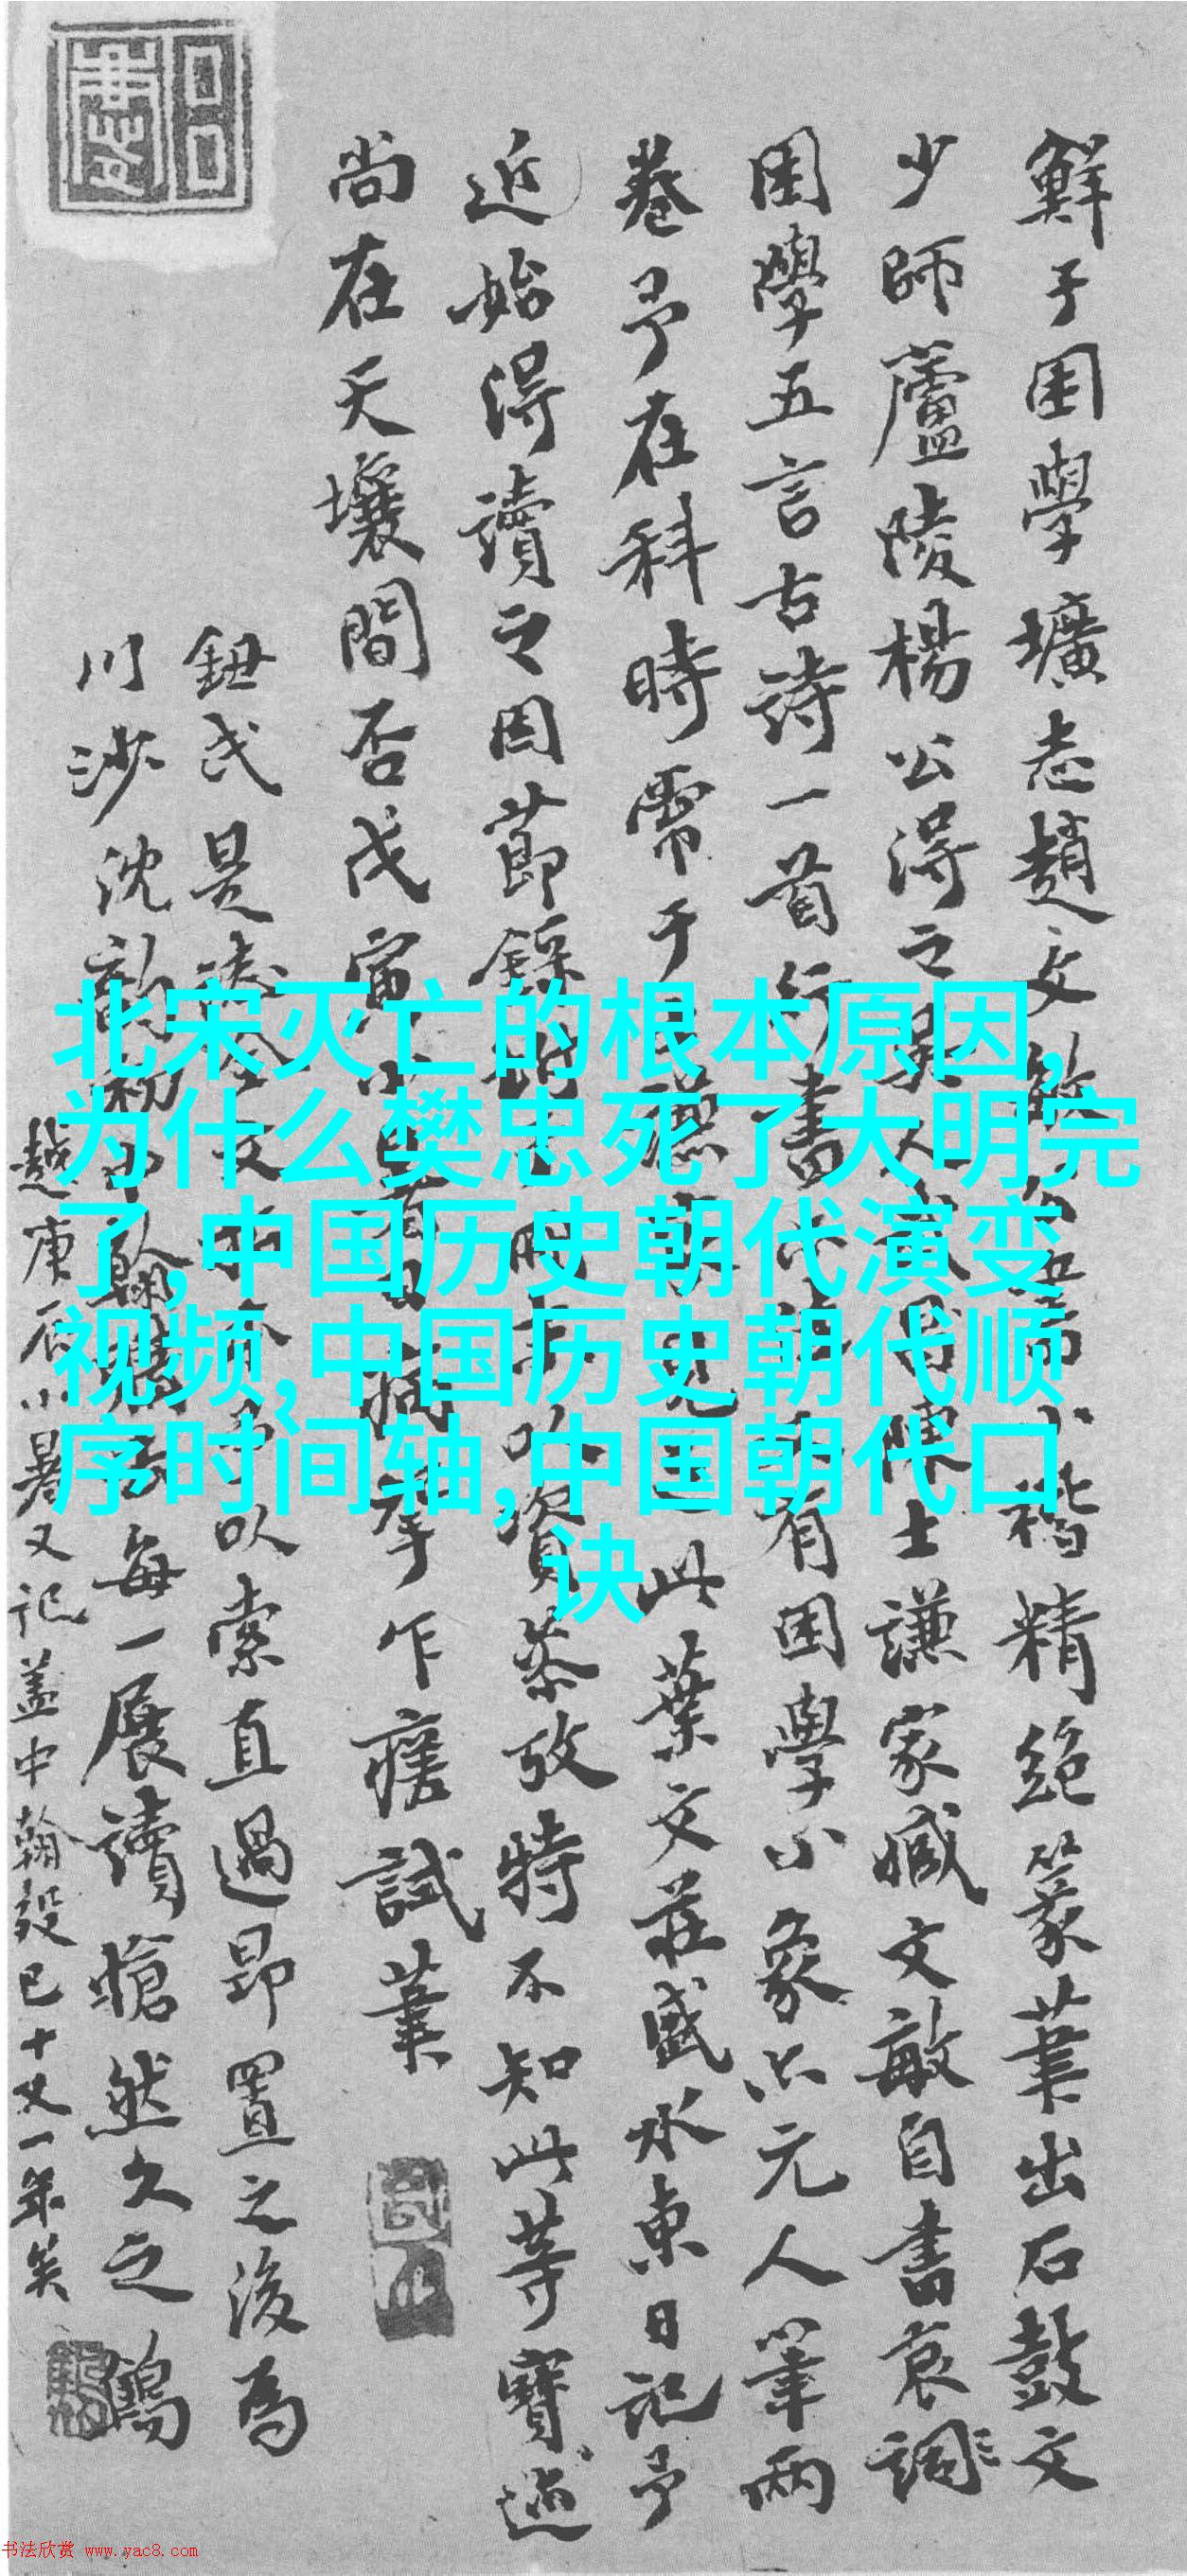 鮮于困學壙志趙文敏小楷精絕篆筆出石鼓文
少師蘆陵楊公得之吳人陳士謙家臧文敏自書哀
困學五言古詩一首行書有困學小象六元人筆兩
卷予在科時常于見此葉文莊盛水東日記予
近始得讀之因節錄以資參攷特不知此等寶迹
尚在天壤間否戊寅小暑乍痊試筆
鈕氏是以索直過昂置之後為
川沙沈韵初中翰購去每一展讀愴然久之鶴
越庚辰小暑又記蓋中翰歿已十又一年矣
北宋灭亡的根本原因,
为什么樊忠死了大明完
了,中国历史朝代演变
视频,中国历史朝代顺
序时间轴,中国朝代口
诀
书法欣赏 www.yac8.com